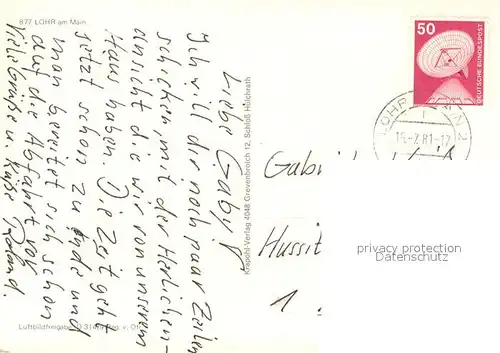 877 LOHR am Main
Liebe Gaby!
Ich will dir noch paar Zeilen
schicken, mit der Herlichen
Aussicht die wir von unserem
Haus haben. Die Zeit geht
jetzt schon zu Ende und
man bereitet sich schon
auf die Abfahrt vor
Viele Grüße u. Küße Roland.
Luftbildfreigabe: D 31
Krapohl-Verlag 4048 Grevenbroich 12, Schloß Hülchrath
50
DEUTSCHE BUNDESPOST
LOHR
81-12
Gabri
Hussit
1.
privacy protection
Datenschutz